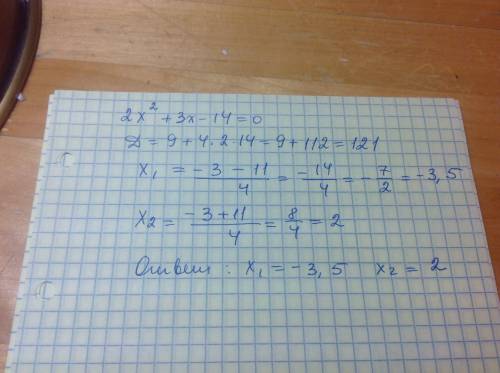 2x² + 3x - 14 = 0
Д = 9 + 4 · 2 · 14 = 9 + 112 = 121
x₁ = (-3 - 11)/4 = -14/4 = -7/2 = -3,5
x₂ = (-3 + 11)/4 = 8/4 = 2
Ответ: x₁ = -3,5 x₂ = 2